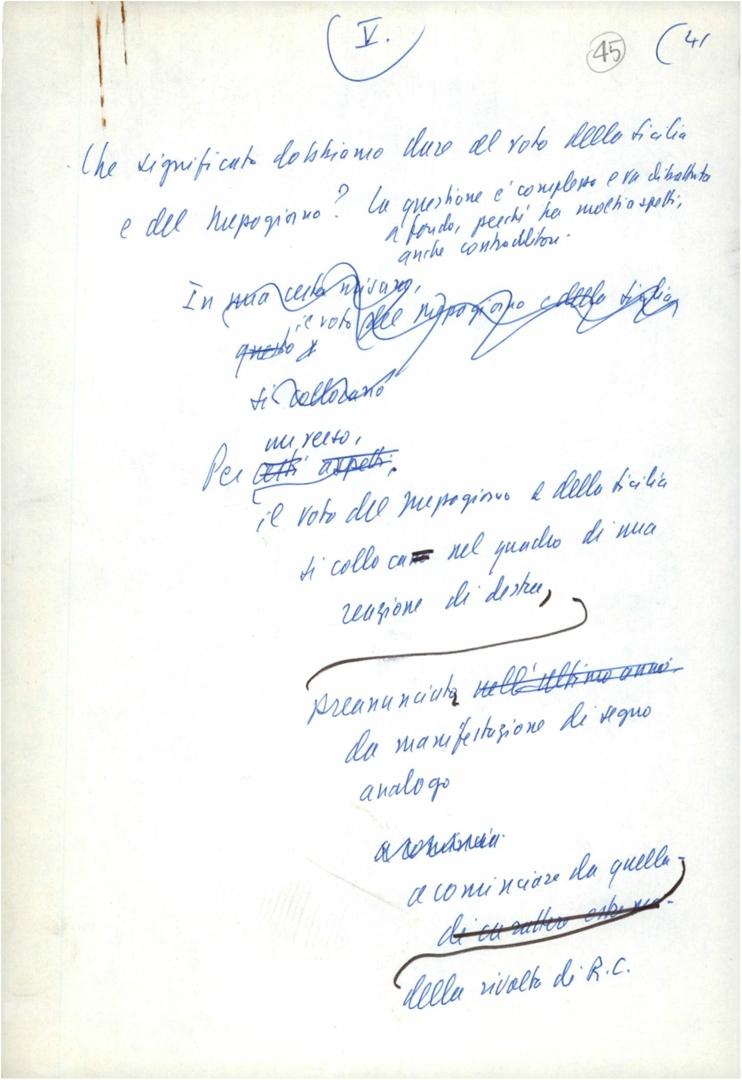 V.
45
41
Che significato dobbiamo dare al voto della Sicilia
e del Mezzogiorno? La questione è complessa e va dibattuta
a fondo, perché ha molti aspetti,
anche contraddittori.
In una certa misura,
il voto del Mezzogiorno e della Sicilia
questo
si collocano
un verso,
Per certi aspetti,
il voto del Mezzogiorno e della Sicilia
si colloca nel quadro di una
reazione di destra,
preannunciata nell'ultimo anno
da manifestazione di segno
analogo
a cominciare da quella
di carattere
della rivolta di R.C.